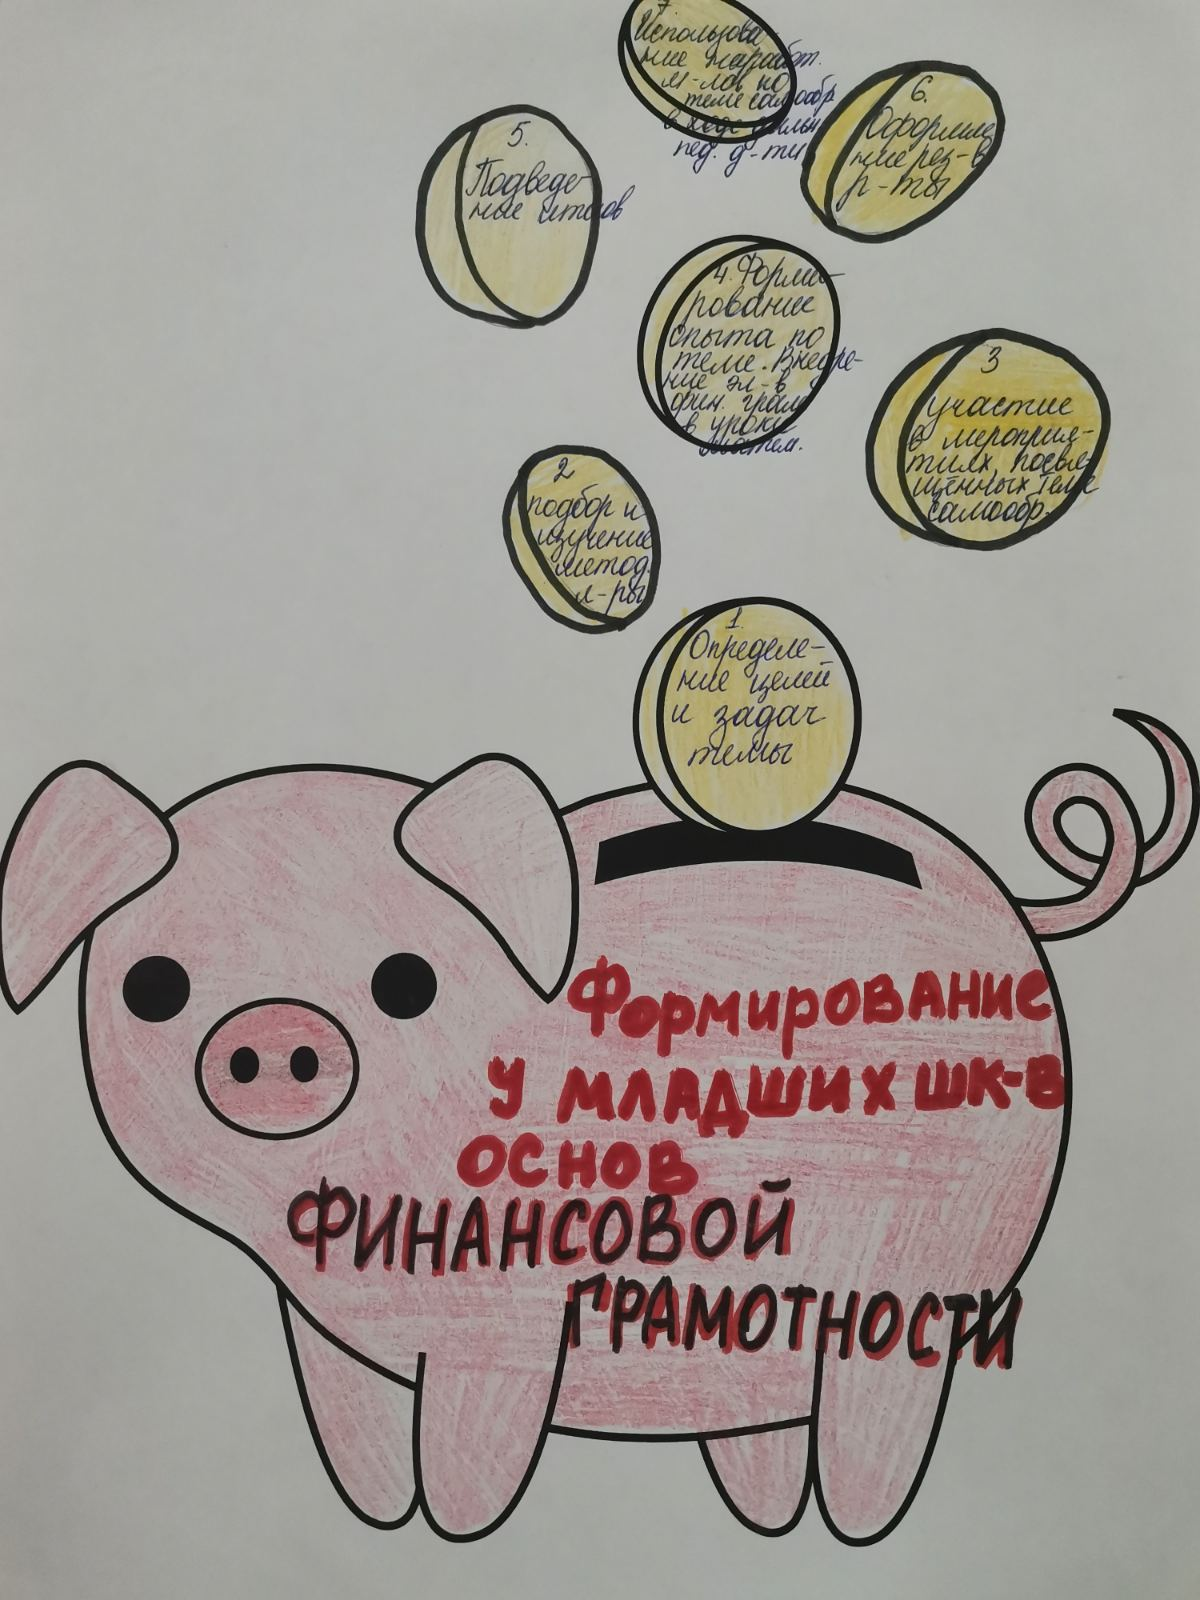 7.
Использова-
ние наработ.
м-лов по
теме самообр
в ходе
пед. д-ти
6.
Оформле
ние рез-в
р-ты
5.
Подведе-
ние итогов
4. Форми-
рование
опыта по
теме. Внедре-
ние эл-в
фин. грам
в уроки
матем.
3
участие
в мероприя-
тиях, посвя-
щённых теме
самообр.
2
подбор и
изучение
метод.
л-ры
1.
Определе-
ние целей
и задач
темы
Формирование
у младших шк-в
основ
ФИНАНСОВОЙ
ГРАМОТНОСТИ